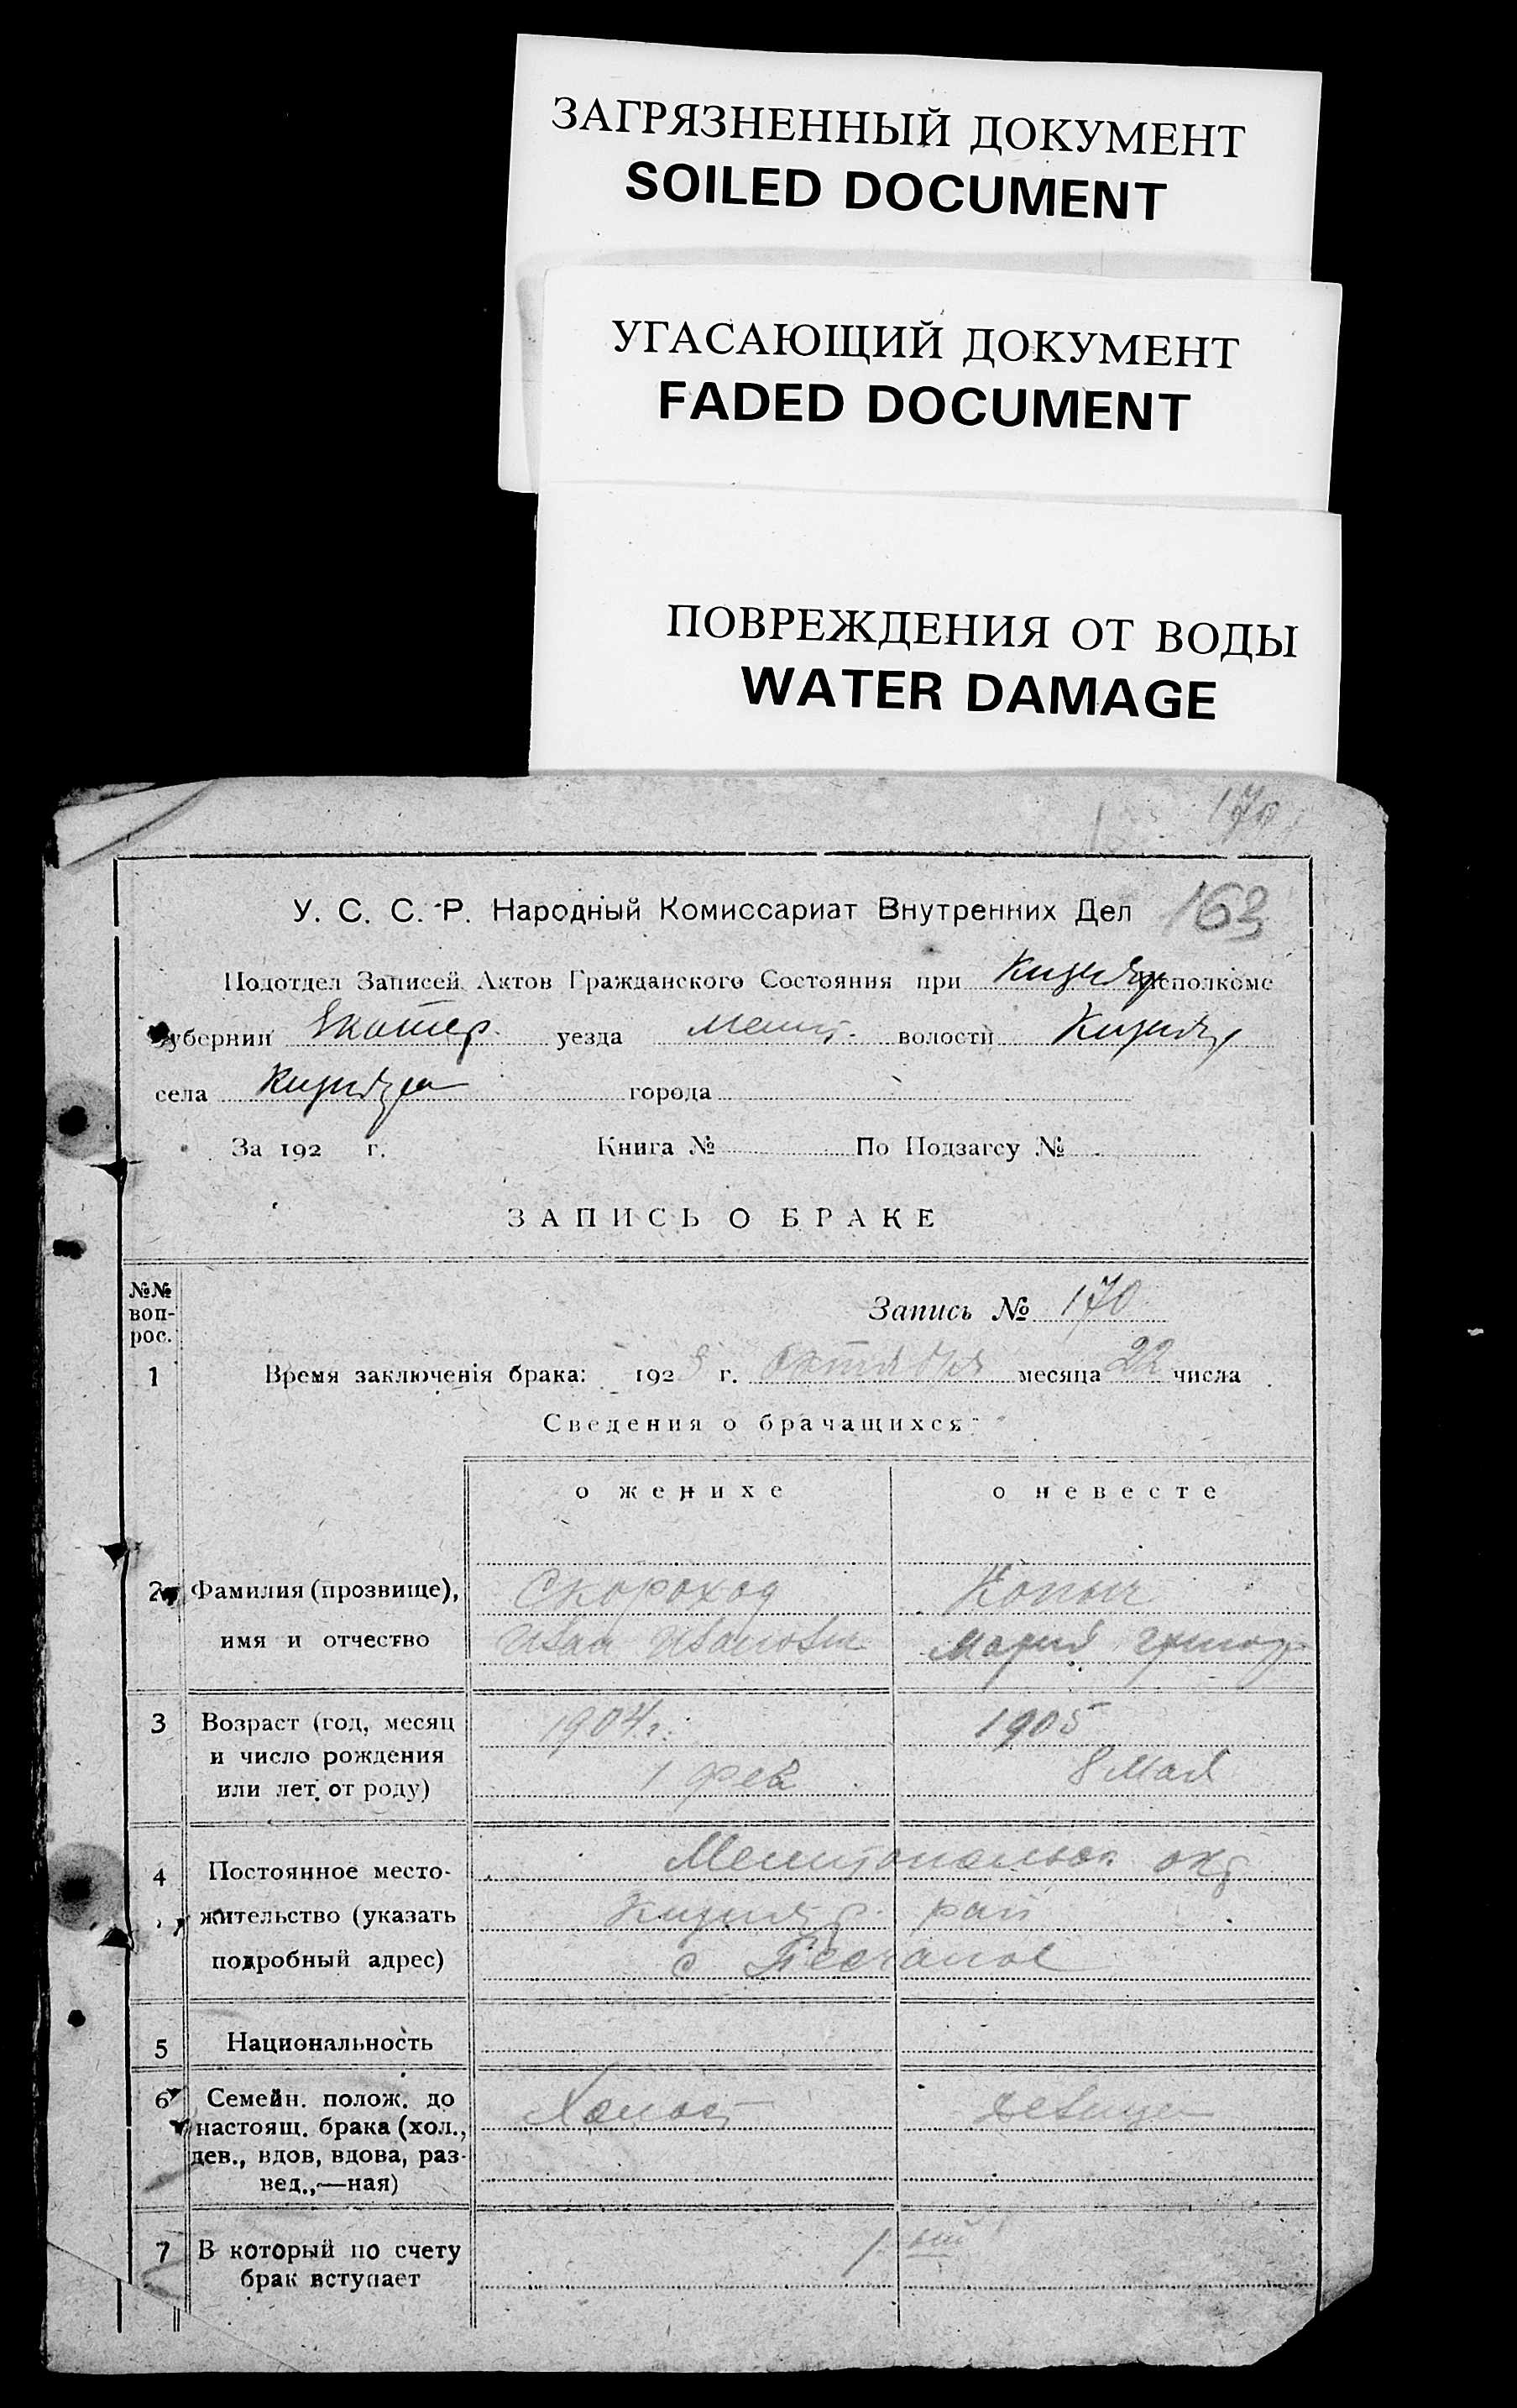 ЗАГРЯЗНЕННЫЙ ДОКУМЕНТ
SOILED DOCUMENT
УГАСАЮЩИЙ ДОКУМЕНТ
FADED DOCUMENT
ПОВРЕЖДЕНИЯ ОТ ВОДЫ
WATER DAMAGE
170
У. С. С. Р. Народный Комиссариат Внутренних Дел 163
Подотдел Записей Актов Гражданского Состояния при исполкоме
губернии Екатер. уезда Мелит. волости
села города
За 192 г. Книга № По Подзагсу №
ЗАПИСЬ О БРАКЕ
№№ вопрос.
Запись № 170
1 Время заключенія брака: 192 г. октября месяца 22 числа
Сведения о брачащихся
о женихе о невесте
2 Фамилия (прозвище), Скороход Копыч
имя и отчество Иван Иванович Мария Григор
3 Возраст (год, месяц 1904 г. 1905
и число рождения 1 фев 8 мая
или лет от роду)
4 Постоянное место- Мелитопольск окр
жительство (указать рай
подробный адрес) с Песчаное
5 Национальность
6 Семейн. полож. до Холост девица
настоящ. брака (хол.,
дев., вдов, вдова, раз-
вед.,—ная)
7 В который по счету 1 ый
брак вступает